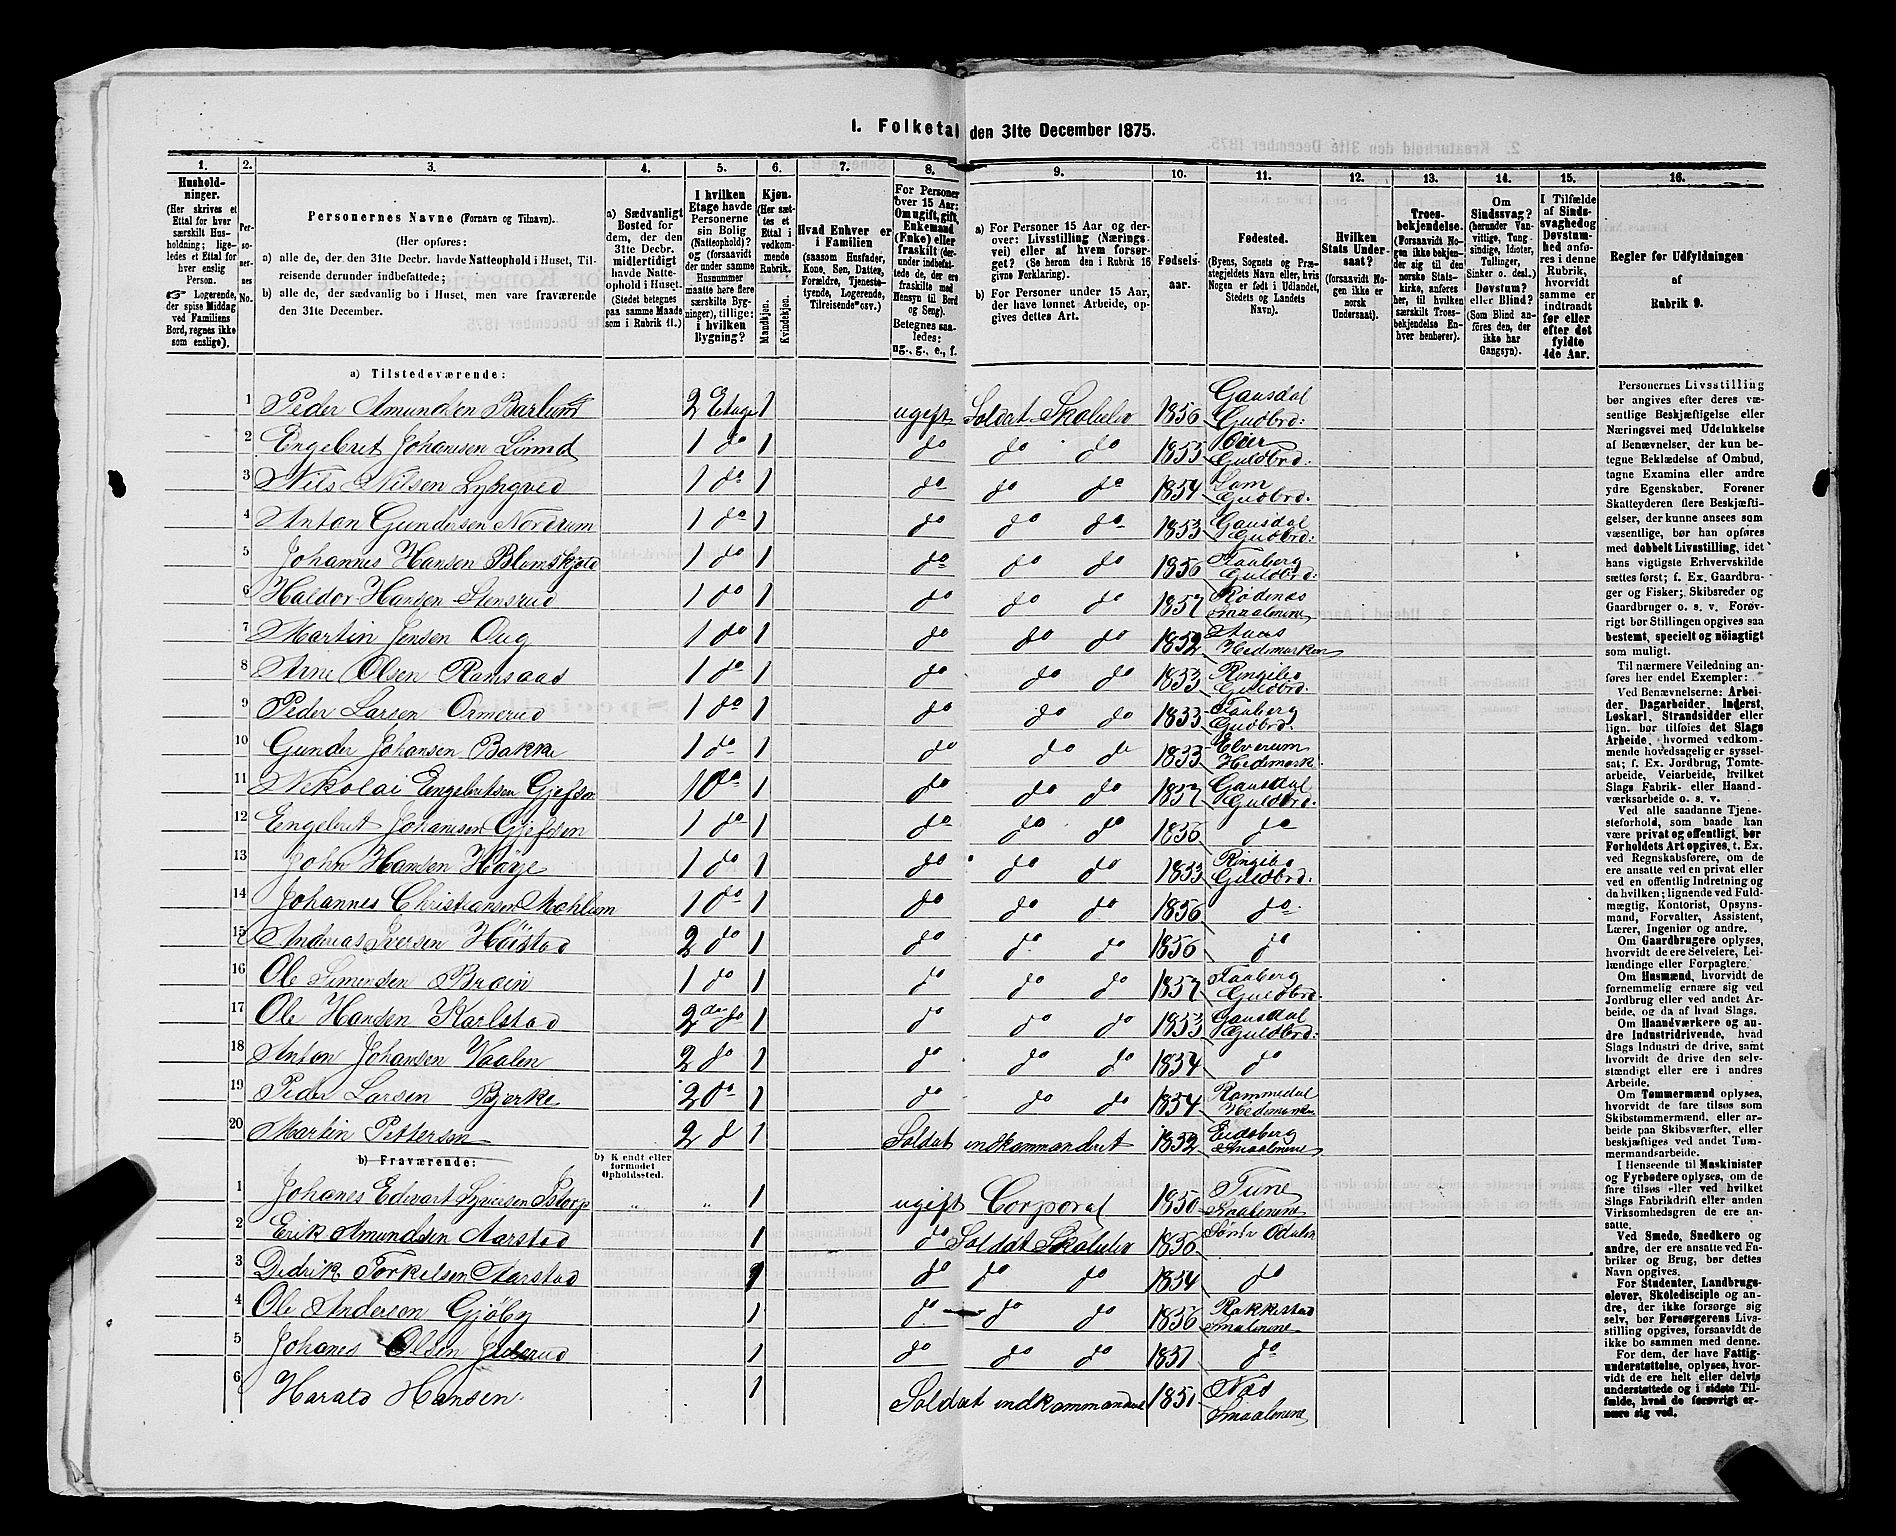 1. Folketal den 31te December 1875.
1. 2. 3. 4. 5. 6. 7. 8. 9. 10. 11. 12. 13. 14. 15. 16.
Husholdninger.
(Her skrives et
Ettal for hver
særskilt Husholdning;
ligeledes et Ettal for
hver enslig
Person.
☞ Logerende,
der spise Middag
ved Familiens
Bord, regnes ikke
som enslige).
Personernes No.
Personernes Navne (Fornavn og Tilnavn).
(Her opføres:
a) alle de, der den 31te Decbr. havde Natteophold i Huset, Tilreisende derunder indbefattede;
b) alle de, der sædvanlig bo i Huset, men vare fraværende
den 31te December.
a) Sædvanligt
Bosted for
dem, der den
31te Decbr.
midlertidigt
havde Natteophold i Huset.
(Stedet betegnes
paa samme Maade
som i Rubrik 11.)
I hvilken
Etage havde
Personerne
sin Bolig
(Natteophold)?
og (forsaavidt
der under samme
Husnummer
maatte høre flere
særskilte Bygninger), tillige:
i hvilken
Bygning?
Kjøn.
(Her sættes et
Ettal i
vedkommende
Rubrik.
Mandkjøn.
Kvindekjøn.
Hvad Enhver er
i Familien
(saasom Husfader,
Kone, Søn, Datter,
Forældre, Tjenestetyende, Logerende,
Tilreisende osv.)
For Personer
over 15 Aar:
Om ugift, gift,
Enkemand
(Enke) eller
fraskilt (derunder indbefattede de, der ere
fraskilte med
Hensyn til Bord
og Seng).
Betegnes saaledes:
ug., g., e., f.
a) For Personer 15 Aar og derover: Livsstilling (Næringsvei) eller af hvem forsørget? (Se herom den i Rubrik 16
givne Forklaring).
b) For Personer under 15 Aar,
der have lønnet Arbeide, opgives dettes Art.
Fødselsaar.
Fødested.
(Byens, Sognets og Præstegjeldets Navn eller, hvis
Nogen er født i Udlandet,
Stedets og Landets
Navn).
Hvilken
Stats Undersaat?
(forsaavidt Nogen ikke er
norsk
Undersaat).
Troesbekjendelse.
(Forsaavidt Nogen ikke bekjender sig til den
norske Statskirke, anføres
her, til hvilken
særskilt Troesbekjendelse Enhver henhører).
Om
Sindssvag?
(herunder Vanvittige, Tungsindige, Idioter,
Tullinger,
Sinker o. desl.)
Døvstum?
eller Blind?
(Som Blind anføres den, der
ikke har
Gangsyn).
I Tilfælde
af Sindssvaghed og
Døvstumhed anføres i denne
Rubrik,
hvorvidt
samme er
indtraadt
før eller
efter det
fyldte
4de Aar.
Regler for Udfyldningen
af
Rubrik 9.
a) Tilstedeværende:
1 Peder Amundsen Barlund 2 Etage 1 ugift Soldat Skoleelev 1856 Gausdal Gudbrd:
2 Engebret Johansen Lund 1 do 1 do do do 1855 Øier Guldbrd:
3 Nils Nilsen Lyngved 1 do 1 do do do 1854 Lom Gudbrd:
4 Anton Gundersen Nordrum 1 do 1 do do do 1853 Gausdal Gudbrd:
5 Johannes Hansen Blomskjold 1 do 1 do do do 1856 Faaberg Guldbrd:
6 Haldor Hansen Stensrud 1 do 1 do do do 1857 Rødenæs Smaalenene
7 Martin Jensen Oug 1 do 1 do do do 1852 Hedemarken
8 Arne Olsen Ramsaas 1 do 1 do do do 1853 Ringibo Guldbrd:
9 Peder Larsen Ormerud 1 do 1 do do do 1853 Faaberg Gudbrd:
10 Gunder Johansen Bakke 1 do 1 do do do 1853 Elverum Hedemark:
11 Nikolai Engebretsen Gjefsen 1 do 1 do do do 1857 Gausdal Guldbrd:
12 Engebret Johansen Gjefsen 1 do 1 do do do 1856 do
13 John Hansen Høvje 1 do 1 do do do 1853 Ringibo Guldbrd:
14 Johannes Christiansen Mæhlum 1 do 1 do do do 1856 do
15 Andreas Iversen Høistad 2 do 1 do do do 1856 do
16 Ole Simensen Bræin 1 do 1 do do do 1857 Faaberg Guldbrd:
17 Ole Hansen Karlstad 2 do 1 do do do 1853 Gausdal Guldbrd:
18 Anton Johansen Vaalen 2 do 1 do do do 1854 do
19 Peder Larsen Bjerke 2 do 1 do do do 1854 Rommedal Hedemarken
20 Martin Pettersen 2 d 1 Soldat indkommanderet 1852 Eidsberg Smaalenene
b) Fraværende:
b) Kjendt eller
formodet
Opholdssted.
1 Johanes Edevart Syversen „ „ 1 ugift Corporal 1850 Tune Smaalenene
2 Erik Amundsen Aarstad 1 do Soldat Skoleelev 1856 Søndr Odalen
3 Didrik Torkelsen Aarstad 1 do do do 1854 do
4 Ole Anderson Gjøby 1 do do do 1856 Rakkestad Smalenene
5 Johanes Olsen Julsrud 1 do do do 1857 do
6 Harald Hansen 1 Soldat indkommanderet 1851 Næs Smaalenene
Personernes Livsstilling
bør angives efter deres væsentlige Beskjæftigelse eller
Næringsvei med Udelukkelse
af Benævnelser, der kun betegne Beklædelse af Ombud,
tagne Examina eller andre
ydre Egenskaber. Forener
Skatteyderen flere Beskjæftigelser, der kunne ansees som
væsentlige, bør han opføres
med dobbelt Livsstilling, idet
hans vigtigste Erhvervskilde
sættes først; f. Ex. Gaardbruger og Fisker; Skibsreder og
Gaardbruger o. s. v. Forøvrigt bør Stillingen opgives saa
bestemt, specielt og nøiagtigt
som muligt.
Til nærmere Veiledning anføres her endel Exempler:
Ved Benævnelserne: Arbeider, Dagarbeider, Inderst,
Løskarl, Strandsidder eller
lign. bør tilføies det Slags
Arbeide, hvormed vedkommende hovedsagelig er sysselsat; f. Ex. Jordbrug, Tomtearbeide, Veiarbeide, hvilket
Slags Fabrik- eller Haandværksarbeide o. s. v.
Ved alle saadanne Tjenesteforhold, som baade kan
være privat og offentligt, bør
Forholdets Art opgives, t. Ex.
ved Regnskabsførere, om de
ere ansatte ved en privat eller
ved en offentlig Indretning og
da hvilken; lignende ved Fuldmægtig, Kontorist, Opsynsmand, Forvalter, Assistent,
Lærer, Ingeniør og andre.
Om Gaardbrugere oplyses,
hvorvidt de ere Selveiere, Leilændinge eller Forpagtere.
Om Husmænd, hvorvidt de
fornemmelig ernære sig ved
Jordbrug eller ved andet Arbeide, og da af hvad Slags.
Om Haandværkere og andre Industridrivende, hvad
Slags Industri de drive, samt
hvorvidt de drive den selvstændigt eller ere i andres
Arbeide.
Om Tømmermænd oplyses,
hvorvidt de fare tilsøs som
Skibstømmermænd, eller arbeide paa Skibsværfter, eller
beskjæftiges ved andet Tømmermandsarbeide.
I Henseende til Maskinister
og Fyrbødere oplyses, om de
fare tilsøs eller ved hvilket
Slags Fabrikdrift eller anden
Virksomhedsgren de ere ansatte.
Ved Smede, Snedkere og
andre, der ere ansatte ved Fabriker og Brug, bør dettes
Navn opgives.
For Studenter, Landbrugselever, Skoledisciple og andre, der ikke forsørge sig
selv, bør Forsørgerens Livsstilling opgives, forsaavidt de
ikke bo sammen med denne.
For dem, der have Fattigunderstøttelse, oplyses, hvorvidt de ere helt eller delvis
understøttede og i sidste Tilfælde, hvad de forøvrigt ernære sig ved.